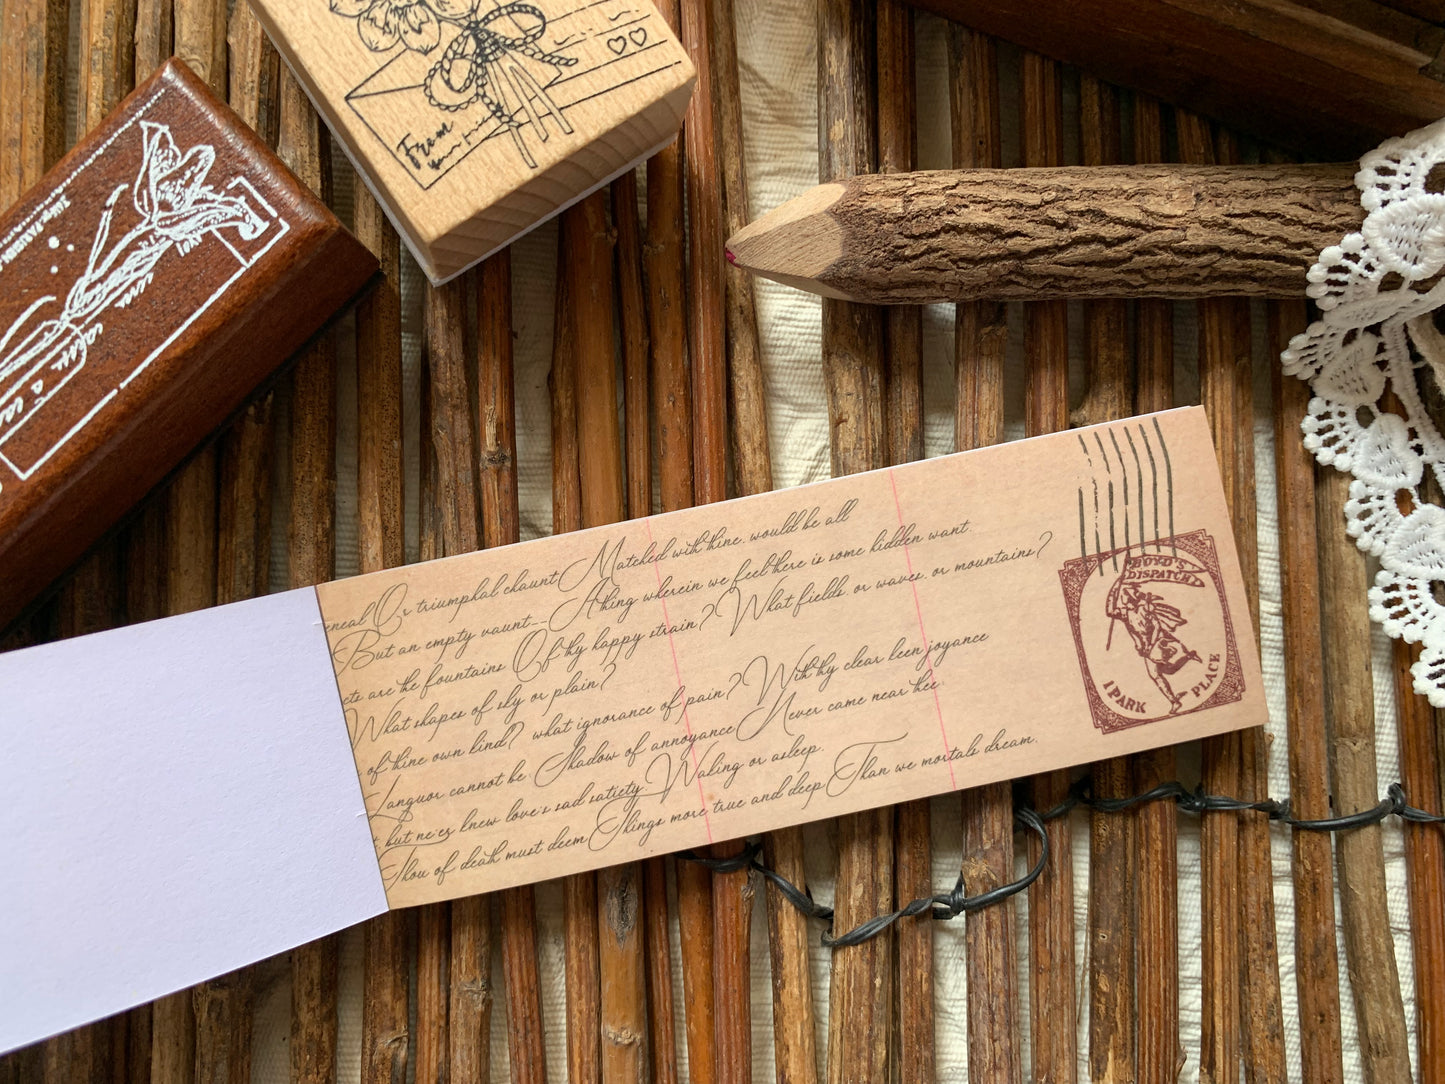 From
eneal Or triumphal chaunt Matched with thine, would be all
But an empty vaunt-- A thing wherein we feel there is some hidden want.
cts are the fountains Of thy happy strain? What fields, or waves, or mountains?
What shapes of sky or plain?
of thine own kind? what ignorance of pain? With thy clear keen joyance
Languor cannot be: Shadow of annoyance Never came near thee:
but ne'er knew love's sad satiety. Waking or asleep,
Thou of death must deem Things more true and deep Than we mortals dream,
BOYD'S
DISPATCH
1 PARK PLACE